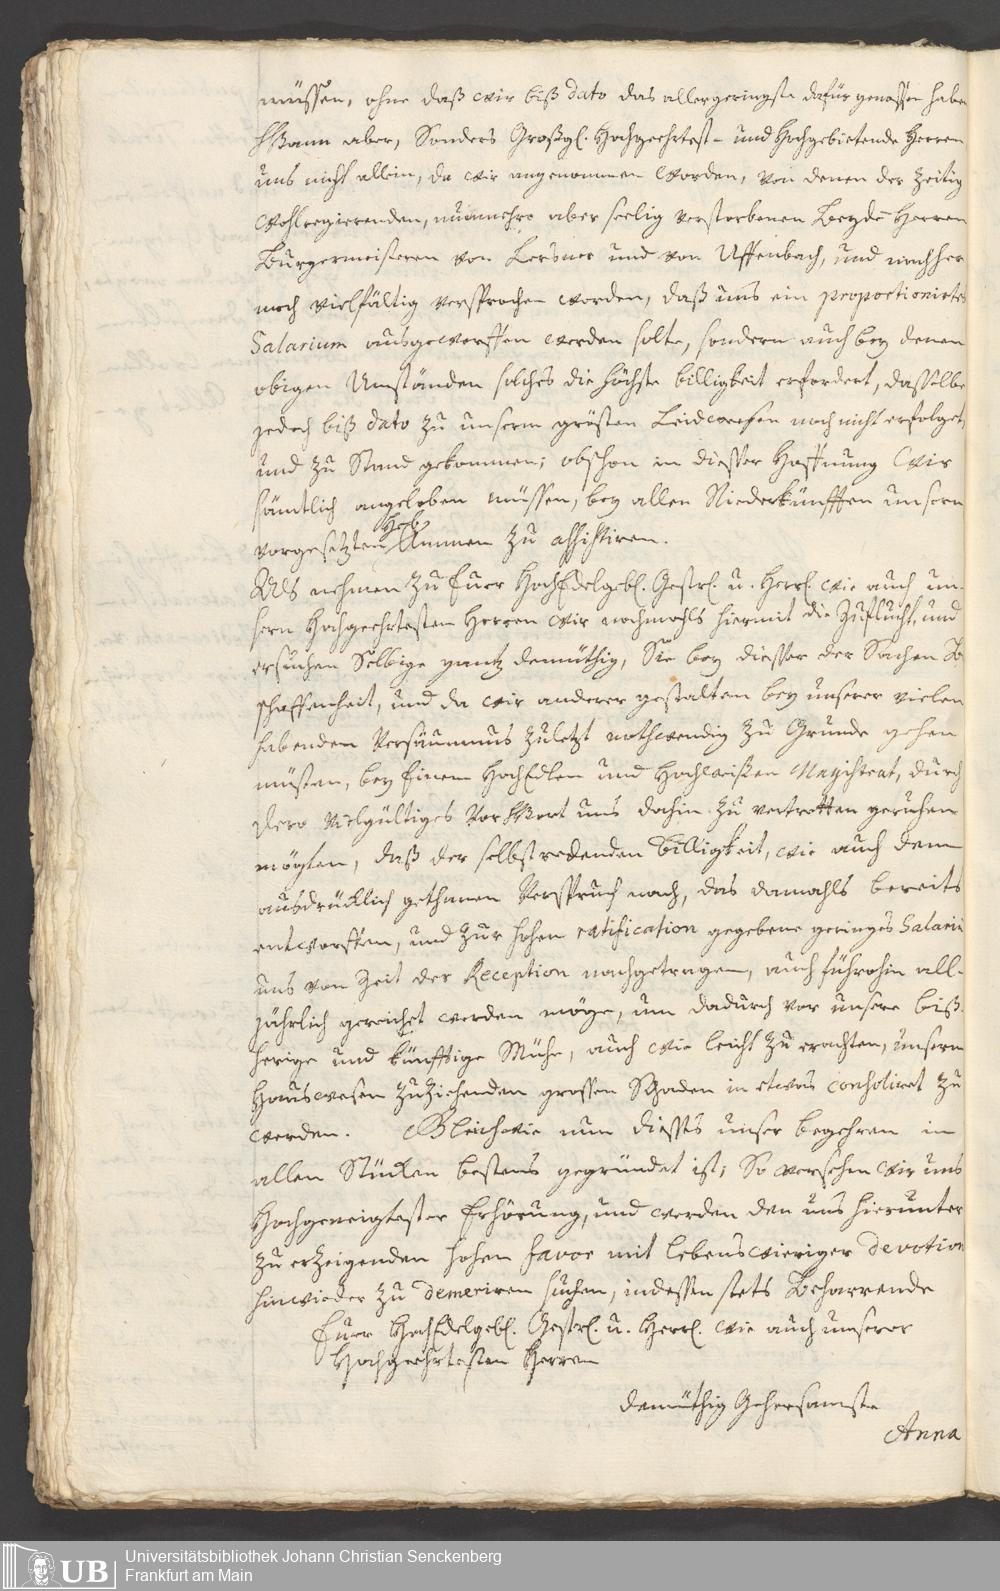 müssen, ohne daß wir biß dato das allergeringste dafür genossen haben
Wann aber, Sonders Großgl. Hochgeehrtest- und Hochgebietende Herren
uns nicht allein, da wir angenommen worden, von denen der Zeitig
Wohlregierenden, nunmehro aber seelig verstorbenen beyde Herren
Burgermeisteren von Lersner und von Uffenbach, und nachher
noch vielfältig versprochen worden, daß uns ein proportionirtes
Salarium ausgeworffen werden solte, sondern auch bey denen
obigen Umständen solches die höchste billigkeit erfordert, dasselbe
jedoch biß dato zu unserm grösten Leidwesen noch nicht erfolget,
und zu Stand gekommen; obschon in diesser Hoffnung Wir
sämtlich angeloben müssen, bey allen Niederkünfften unsern
vorgesetzten Heb Ammen zu assistiren.
Als nehmen zu Euer HochEdelgebl. Gestrl. u. Herrl. wie auch un-
sern Hochgeehrtesten Herren wir nochmahls hiermit die Zuflucht, und
ersuchen Selbige gantz demüthig, Sie bey diesser der Sachen Be
schaffenheit, und da wir anderer gestalten bey unserer vielen
habenden Versäumnus zuletzt nothwendig zu Grunde gehen
müsten, bey Einem HochEdlen und Hochweißen Magistrat, durch
Dero vielgültiges VorWort uns dahin zu vertretten geruhen
mögten, daß der selbstredenden billigkeit, wie auch dem
ausdrücklich gethanen Verspruch nach, das damahls bereits
entworffen, und zur hohen ratification gegebene geringes Salarium
uns von Zeit der Reception nachgetragen, auch führohin all-
jährlich gereichet werden möge, um dadurch vor unsere biß-
herige und künfftige Mühe, auch wie leicht zu erachten, unserm
Hauswesen zuziehenden grossen Schaden in etwas consoliret zu
werden. Gleichwie nun diesses unser begehren in
allen Stücken bestens gegründet ist; So versehen wir uns
Hochgeneigtester Erhörung, und werden den uns hierunter
zu erzeigenden hohen favor mit lebenswieriger devotion
hinwieder zu demeriren suchen, indessen stets beharrende
Euer HochEdelgebl. Gestrl. u. Herrl. wie auch unserer
Hochgeehrtesten Herren
demüthig Gehorsamste
Anna
UB
Universitätsbibliothek Johann Christian Senckenberg
Frankfurt am Main